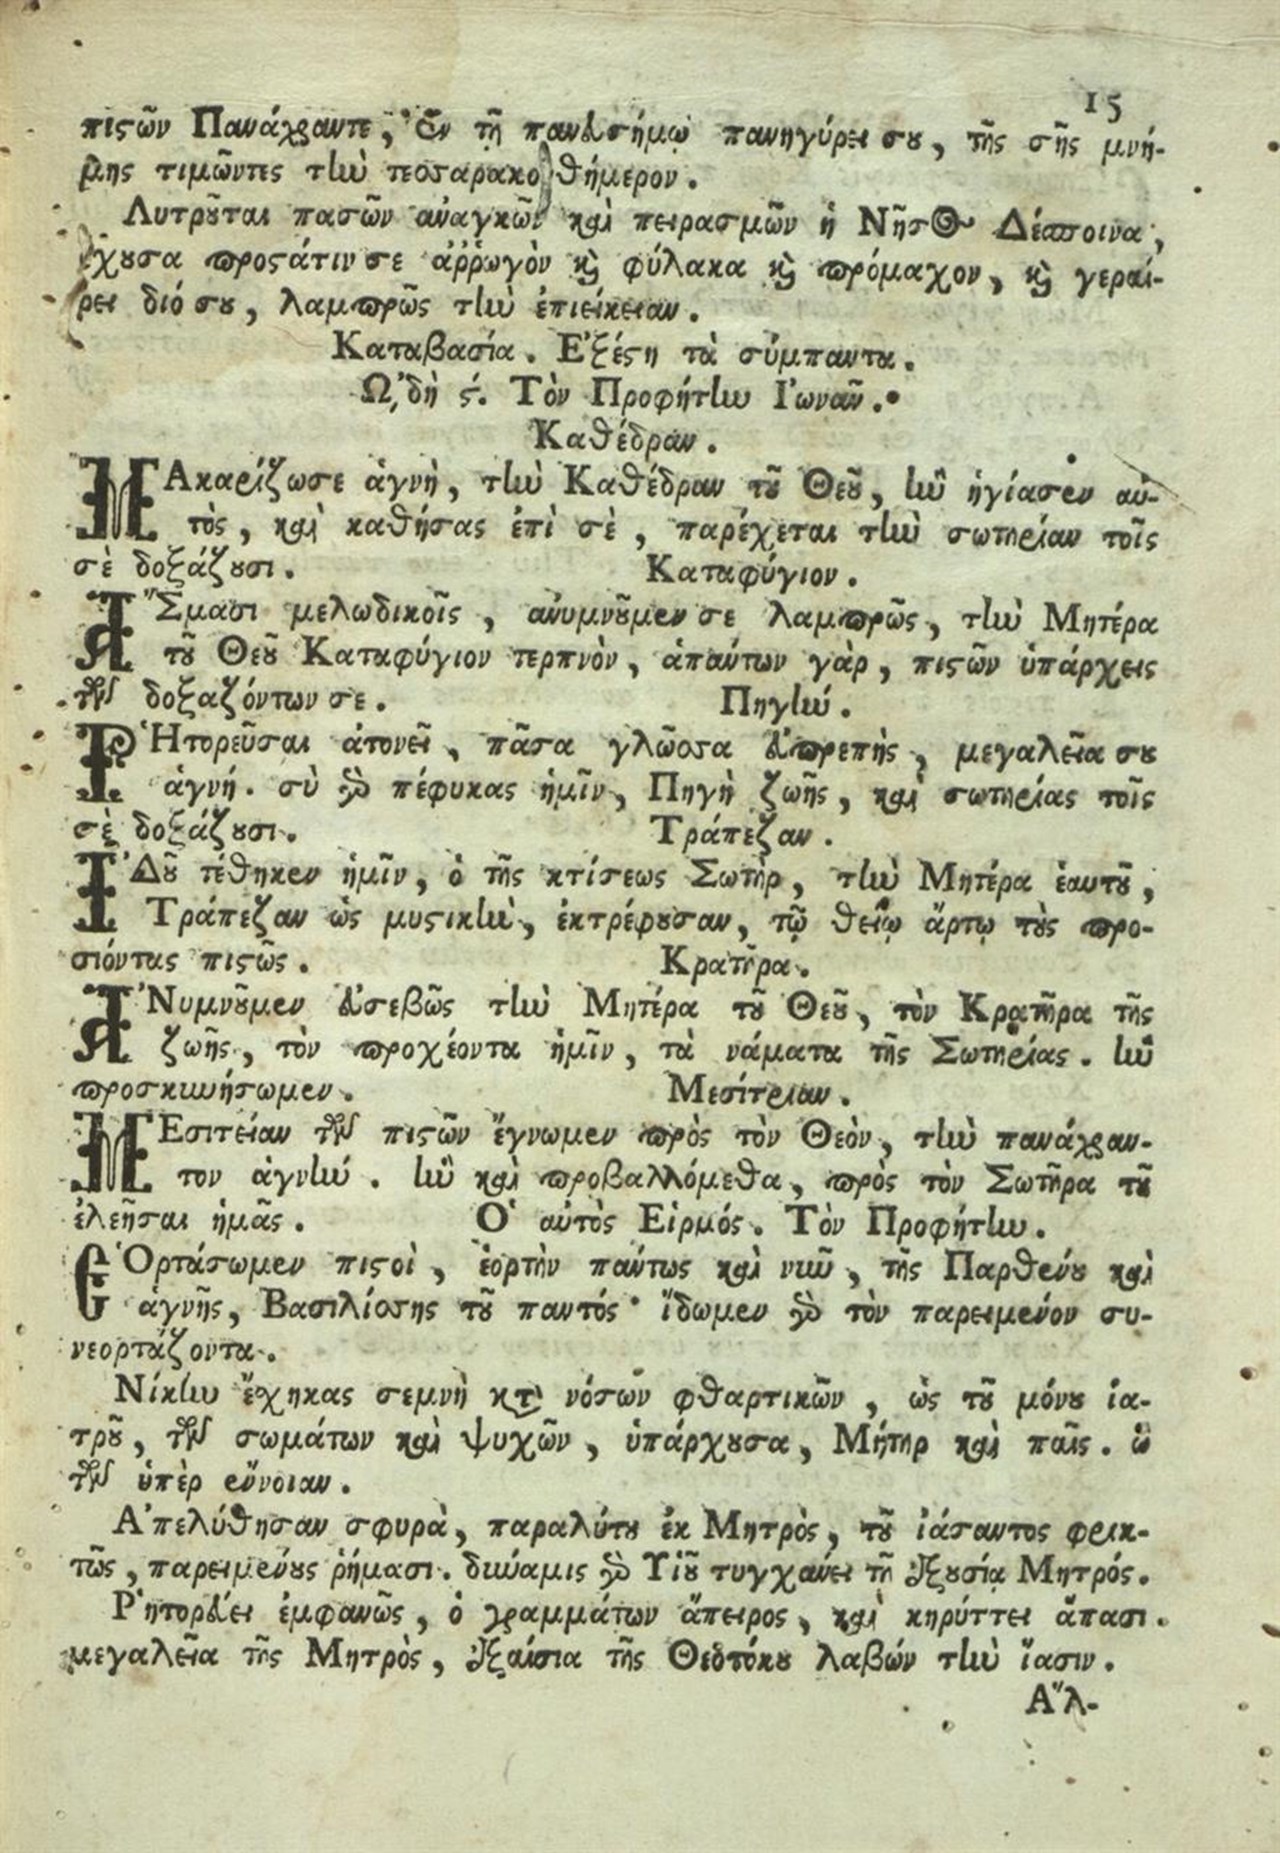 15
πιςῶν Πανάχραντε, Ἐν τῇ πανευσήμῳ πανηγύρει σου, τῆς σῆς μνή-
μης τιμῶντες τὴν τεσσαρακονθήμερον.
Λυτροῦται πασῶν ἀναγκῶν καὶ πειρασμῶν ἡ Νῆσος Δέσποινα,
ἔχουσα προςάτιν σε ἀῤῥωγὸν καὶ φύλακα καὶ πρόμαχον, καὶ γεραί-
ρει διό σου, λαμπρῶς τὴν ἐπιείκειαν.
Καταβασία. Ἐξέςη τὰ σύμπαντα.
ᾨδὴ ς΄. Τὸν Προφήτην Ἰωνᾶν.
Καθέδραν.
ΜΑκαρίζωσε ἁγνὴ, τὴν Καθέδραν τοῦ Θεοῦ, ἣν ἡγίασεν αὐ-
τὸς, καὶ καθήσας ἐπὶ σὲ, παρέχεται τὴν σωτηρίαν τοῖς
σὲ δοξάζουσι. Καταφύγιον.
ᾌΣμασι μελωδικοῖς, ἀνυμνοῦμεν σε λαμπρῶς, τὴν Μητέρα
τοῦ Θεοῦ Καταφύγιον τερπνὸν, ἁπάντων γὰρ, πιςῶν ὑπάρχεις
τῶν δοξαζόντων σε. Πηγήν.
ῬΗτορεῦσαι ἀτονεῖ, πᾶσα γλῶσσα εὐπρεπὴς, μεγαλεῖα σου
ἁγνή. σὺ γὰρ πέφυκας ἡμῖν, Πηγὴ ζωῆς, καὶ σωτηρίας τοῖς
σὲ δοξάζουσι. Τράπεζαν.
ἸΔοῦ τέθηκεν ἡμῖν, ὁ τῆς κτίσεως Σωτὴρ, τὴν Μητέρα ἑαυτοῦ,
Τράπεζαν ὡς μυςικὴν, ἐκτρέφουσαν, τῷ θείῳ ἄρτῳ τοὺς προ-
σιόντας πιςῶς. Κρατῆρα.
ἈΝυμνοῦμεν εὐσεβῶς τὴν Μητέρα τοῦ Θεοῦ, τὸν Κρατῆρα τῆς
ζωῆς, τὸν προχέοντα ἡμῖν, τὰ νάματα τῆς Σωτηρίας. ἣν
προσκυνήσωμεν. Μεσίτριαν.
ΜΕσιτείαν τῶν πιςῶν ἔγνωμεν πρὸς τὸν Θεὸν, τὴν πανάχραν-
τον ἁγνήν. ἣν καὶ προβαλλόμεθα, πρὸς τὸν Σωτῆρα τοῦ
ἐλεῆσαι ἡμᾶς. Ὁ αὐτὸς Εἱρμός. Τὸν Προφήτην.
ἙΟρτάσωμεν πιςοὶ, ἑορτὴν πάντως καὶ νῦν, τῆς Παρθένου καὶ
ἁγνῆς, Βασιλίσσης τοῦ παντός· ἴδωμεν γὰρ τὸν παρειμένον συ-
νεορτάζοντα.
Νίκην ἔχηκας σεμνὴ κατὰ νόσων φθαρτικῶν, ὡς τοῦ μόνου ἰα-
τροῦ, τῶν σωμάτων καὶ ψυχῶν, ὑπάρχουσα, Μήτηρ καὶ παῖς. ὢ
τῶν ὑπὲρ εὔνοιαν.
Ἀπελύθησαν σφυρὰ, παραλύτου ἐκ Μητρὸς, τοῦ ἰάσαντος φρικ-
τῶς, παρειμένους ῥήμασι. δύναμις γὰρ Υἱοῦ τυγχάνει τῇ ἐξουσίᾳ Μητρός.
Ῥητορεύει ἐμφανῶς, ὁ γραμμάτων ἄπειρος, καὶ κηρύττει ἅπασι.
μεγαλεῖα τῆς Μητρὸς, ἐξαίσια τῆς Θεοτόκου λαβών τὴν ἴασιν.
Ἄλ-